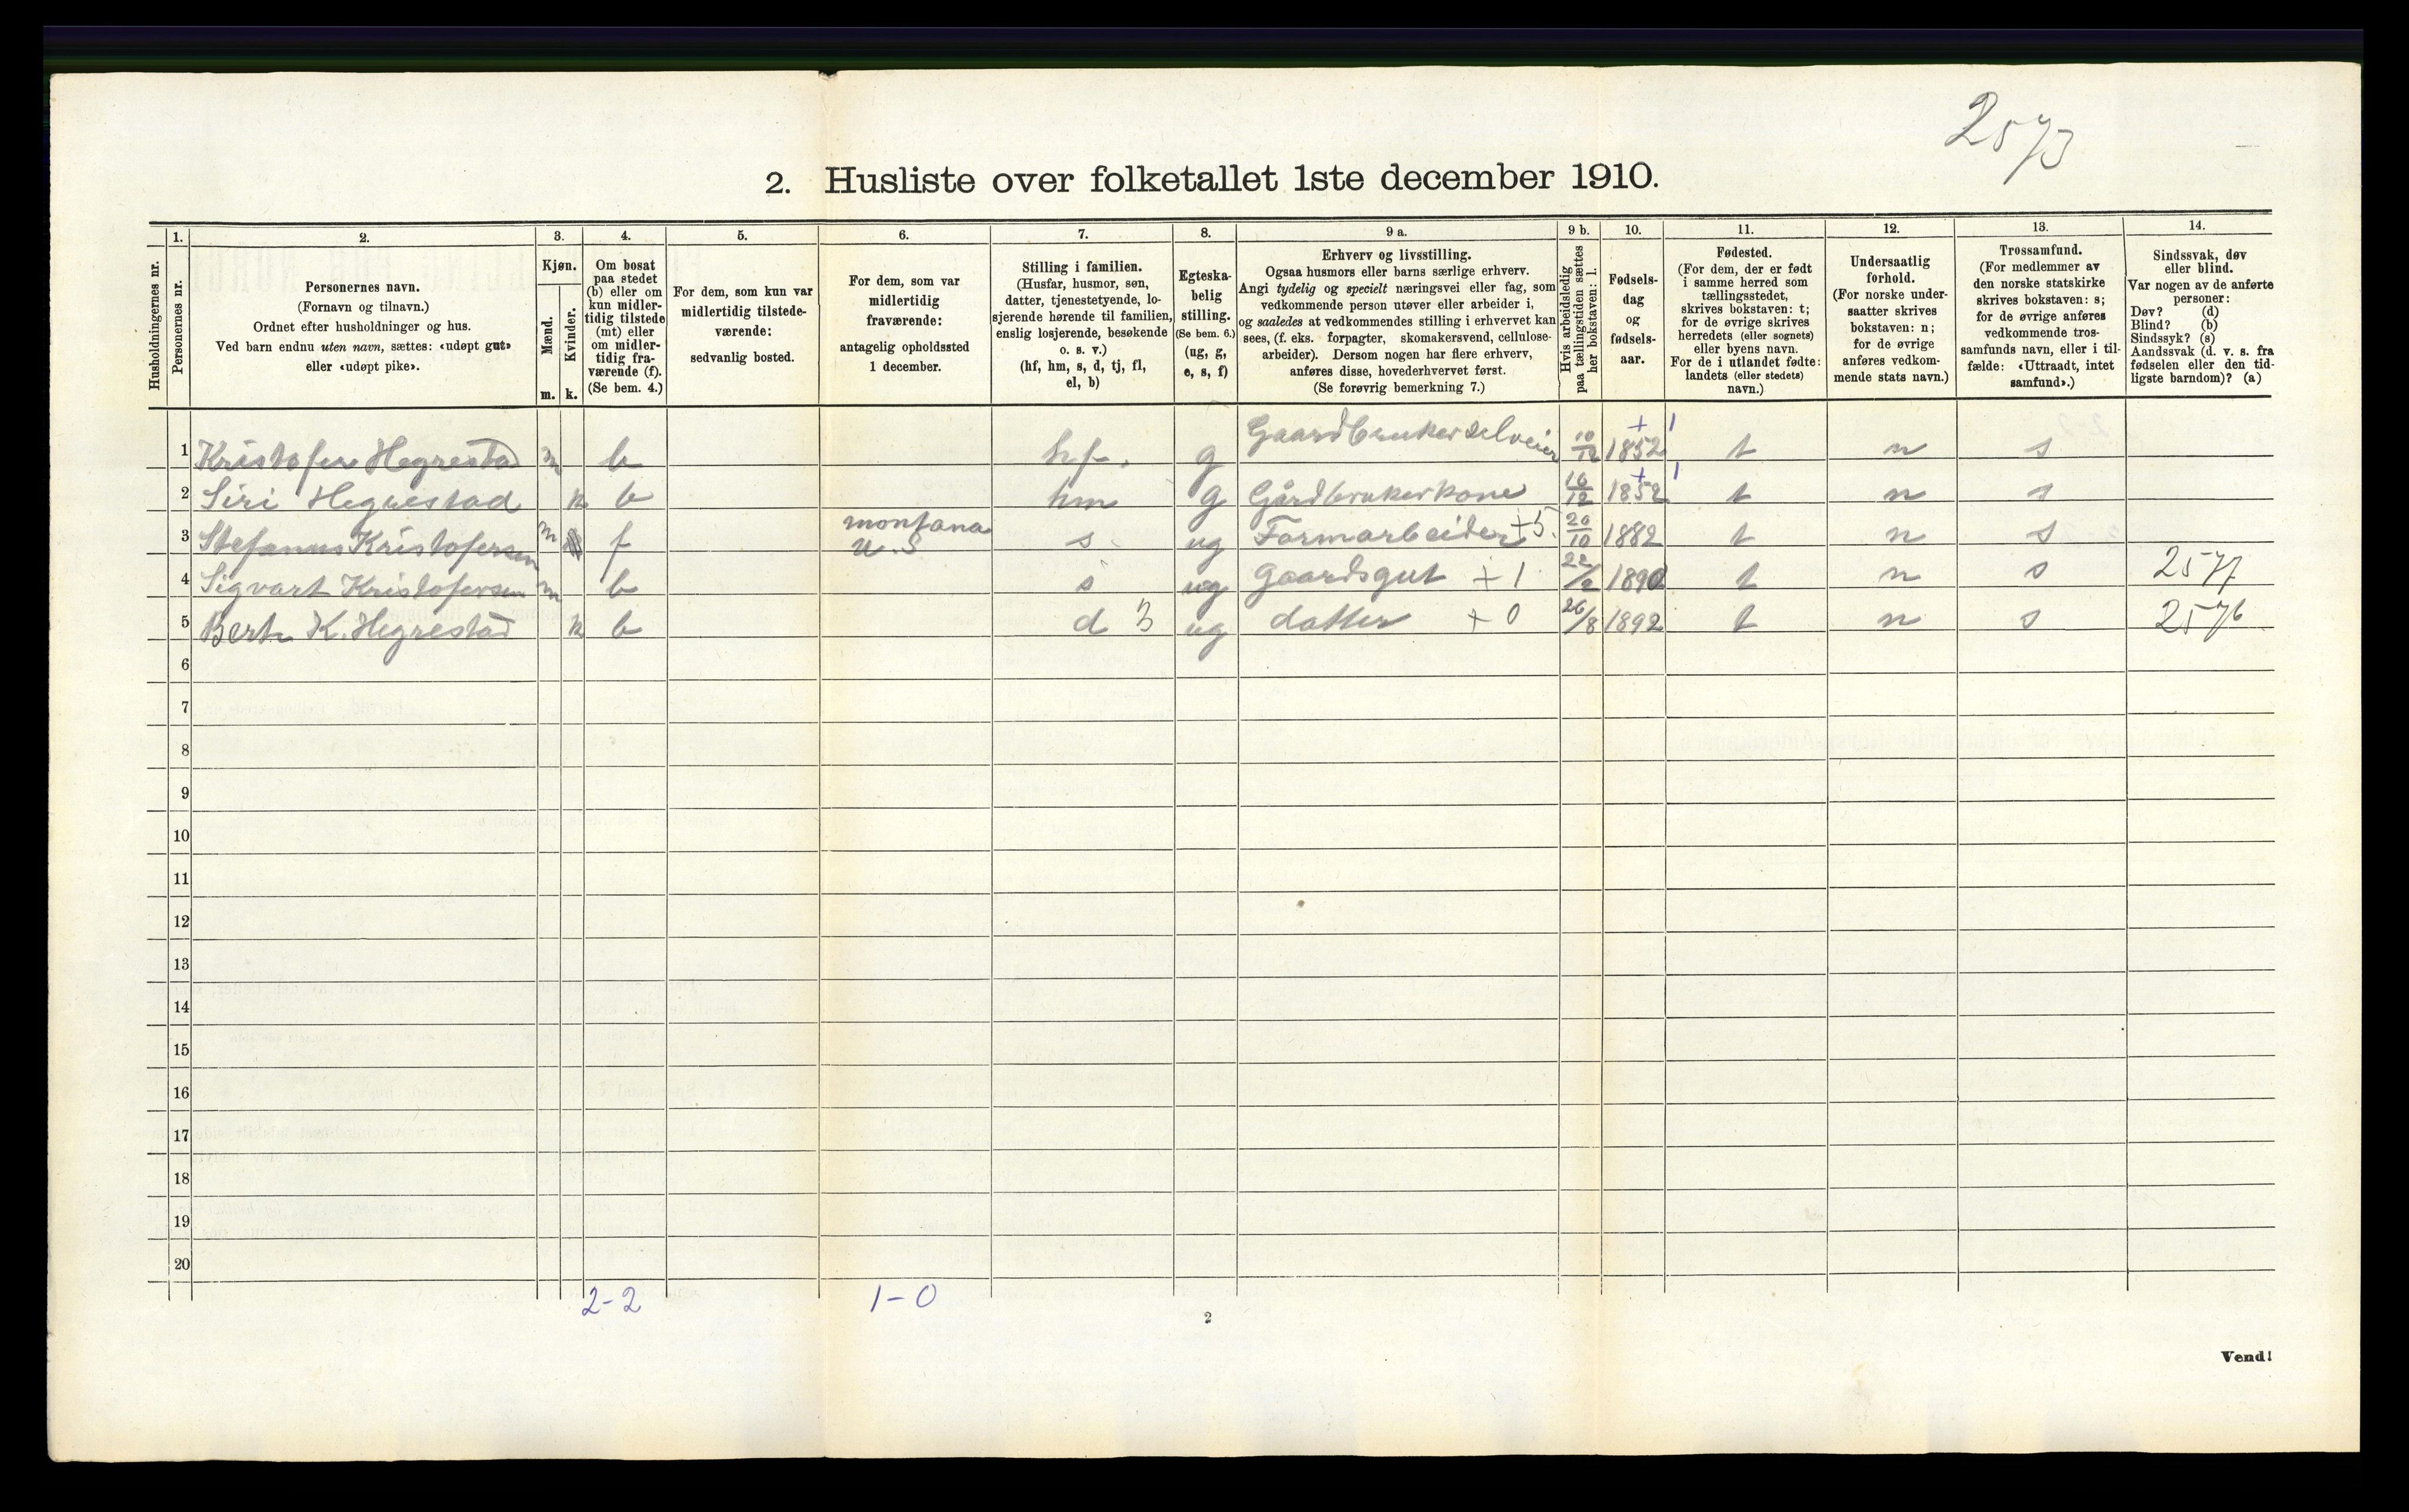 2573
2. Husliste over folketallet 1ste december 1910.
Husholdningernes nr.
1.
Personernes nr.
2.
Personernes navn.
(Fornavn og tilnavn.)
Ordnet efter husholdninger og hus.
Ved barn endnu uten navn, sættes: «udøpt gut»
eller «udøpt pike».
3.
Kjøn.
Mænd.
Kvinder.
m. k.
4.
Om bosat
paa stedet
(b) eller om
kun midler-
tidig tilstede
(mt) eller
om midler-
tidig fra-
værende (f).
(Se bem. 4.)
5.
For dem, som kun var
midlertidig tilstede-
værende:
sedvanlig bosted.
6.
For dem, som var
midlertidig
fraværende:
antagelig opholdssted
1 december.
7.
Stilling i familien.
(Husfar, husmor, søn,
datter, tjenestetyende, lo-
sjerende hørende til familien,
enslig losjerende, besøkende
o. s. v.)
(hf, hm, s, d, tj, fl,
el, b)
8.
Egteska-
belig
stilling.
(Se bem. 6.)
(ug, g,
e, s, f)
9 a.
Erhverv og livsstilling.
Ogsaa husmors eller barns særlige erhverv.
Angi tydelig og specielt næringsvei eller fag, som
vedkommende person utøver eller arbeider i,
og saaledes at vedkommendes stilling i erhvervet kan
sees, (f. eks. forpagter, skomakersvend, cellulose-
arbeider). Dersom nogen har flere erhverv,
anføres disse, hovederhvervet først.
(Se forøvrig bemerkning 7.)
9 b.
Hvis arbeidsledig
paa tællingstiden sættes
her bokstaven: l.
10.
Fødsels-
dag
og
fødsels-
aar.
11.
Fødested.
(For dem, der er født
i samme herred som
tællingsstedet,
skrives bokstaven: t;
for de øvrige skrives
herredets (eller sognets)
eller byens navn.
For de i utlandet fødte:
landets (eller stedets)
navn.)
12.
Undersaatlig
forhold.
(For norske under-
saatter skrives
bokstaven: n;
for de øvrige
anføres vedkom-
mende stats navn.)
13.
Trossamfund.
(For medlemmer av
den norske statskirke
skrives bokstaven: s;
for de øvrige anføres
vedkommende tros-
samfunds navn, eller i til-
fælde: «Uttraadt, intet
samfund».)
14.
Sindssvak, døv
eller blind.
Var nogen av de anførte
personer:
Døv? (d)
Blind? (b)
Sindssyk? (s)
Aandssvak (d. v. s. fra
fødselen eller den tid-
ligste barndom)? (a)
1 Kristofer Hegrestad m b hf. g Gaardbruker selveier 10/12 1852 + 1 t n s
2 Siri Hegrestad k b hm g Gårdbrukerkone 16/12 1852 + 1 t n s
3 Stefanus Kristofersen m f montana U.S s ug Farmarbeider +5. 20/10 1882 t n s
4 Sigvart Kristofersen m b s ug gaardsgut +1 22/2 1890 t n s 2577
5 Berta K. Hegrestad k b d 3 ug datter +0 26/8 1892 t n s 2576
6
7
8
9
10
11
12
13
14
15
16
17
18
19
20
2-2 1-0
2
Vend!